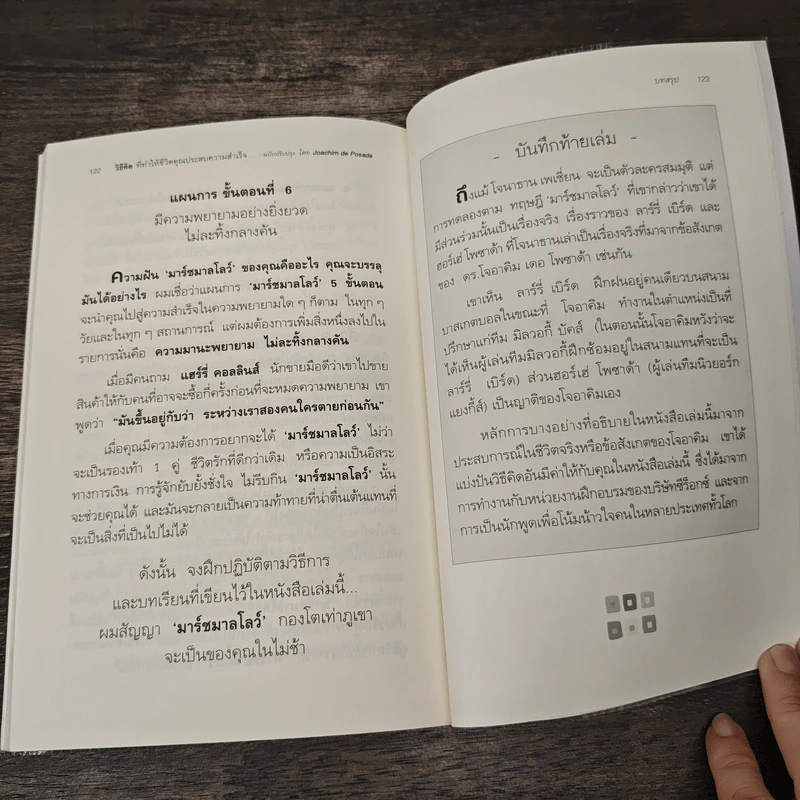 122 วิธีคิด ที่ทำให้ชีวิตคุณประสบความสำเร็จ... ฉบับปรับปรุง โดย Joachim de Posada
แผนการ ขั้นตอนที่ 6
มีความพยายามอย่างยิ่งยวด
ไม่ละทิ้งกลางคัน
ความฝัน 'มาร์ชมาลโลว์' ของคุณคืออะไร คุณจะบรรลุ
มันได้อย่างไร ผมเชื่อว่าแผนการ 'มาร์ชมาลโลว์' 5 ขั้นตอน
จะนำคุณไปสู่ความสำเร็จในความพยายามใด ๆ ก็ตาม ในทุก ๆ
วัยและในทุก ๆ สถานการณ์ แต่ผมต้องการเพิ่มสิ่งหนึ่งลงไปใน
รายการนั่นคือ ความมานะพยายาม ไม่ละทิ้งกลางคัน
เมื่อมีคนถาม แฮร์รี่ คอลลินส์ นักขายมือดีว่าเขาไปขาย
สินค้าให้กับคนที่อาจจะซื้อกี่ครั้งก่อนที่จะหมดความพยายาม เขา
พูดว่า "มันขึ้นอยู่กับว่า ระหว่างเราสองคนใครตายก่อนกัน"
เมื่อคุณมีความต้องการอยากจะได้ 'มาร์ชมาลโลว์' ไม่ว่า
จะเป็นรองเท้า 1 คู่ ชีวิตรักที่ดีกว่าเดิม หรือความเป็นอิสระ
ทางการเงิน การรู้จักยับยั้งชั่งใจ ไม่รีบกิน 'มาร์ชมาลโลว์' นั้น
จะช่วยคุณได้ และมันจะกลายเป็นความท้าทายที่น่าตื่นเต้นแทนที่
จะเป็นสิ่งที่เป็นไปไม่ได้
ดังนั้น จงฝึกปฏิบัติตามวิธีการ
และบทเรียนที่เขียนไว้ในหนังสือเล่มนี้...
ผมสัญญา 'มาร์ชมาลโลว์' กองโตเท่าภูเขา
จะเป็นของคุณในไม่ช้า
บทสรุป 123
- บันทึกท้ายเล่ม -
ถึงแม้ โจนาธาน เพเชี่ยน จะเป็นตัวละครสมมุติ แต่
การทดลองตาม ทฤษฎี 'มาร์ชมาลโลว์' ที่เขากล่าวว่าเขาได้
มีส่วนร่วมนั้นเป็นเรื่องจริง เรื่องราวของ ลาร์รี่ เบิร์ด และ
ฮอร์เฮ่ โพซาด้า ที่โจนาธานเล่าเป็นเรื่องจริงที่มาจากข้อสังเกต
ของ ดร.โจอาคิม เดอ โพซาด้า เช่นกัน
เขาเห็น ลาร์รี่ เบิร์ด ฝึกฝนอยู่คนเดียวบนสนาม
บาสเกตบอลในขณะที่ โจอาคิม ทำงานในตำแหน่งเป็นที่
ปรึกษาแก่ทีม มิลวอกี้ บัคส์ (ในตอนนั้นโจอาคิมหวังว่าจะ
ได้เห็นผู้เล่นทีมมิลวอกี้ฝึกซ้อมอยู่ในสนามแทนที่จะเป็น
ลาร์รี่ เบิร์ด) ส่วนฮอร์เฮ่ โพซาด้า (ผู้เล่นทีมนิวยอร์ก
แยงกี้ส์) เป็นญาติของโจอาคิมเอง
หลักการบางอย่างที่อธิบายในหนังสือเล่มนี้มาจาก
ประสบการณ์ในชีวิตจริงหรือข้อสังเกตของโจอาคิม เขาได้
แบ่งปันวิธีคิดอันมีค่าให้กับคุณในหนังสือเล่มนี้ ซึ่งได้มาจาก
การทำงานกับหน่วยงานฝึกอบรมของบริษัทซีร็อกซ์ และจาก
การเป็นนักพูดเพื่อโน้มน้าวใจคนในหลายประเทศทั่วโลก